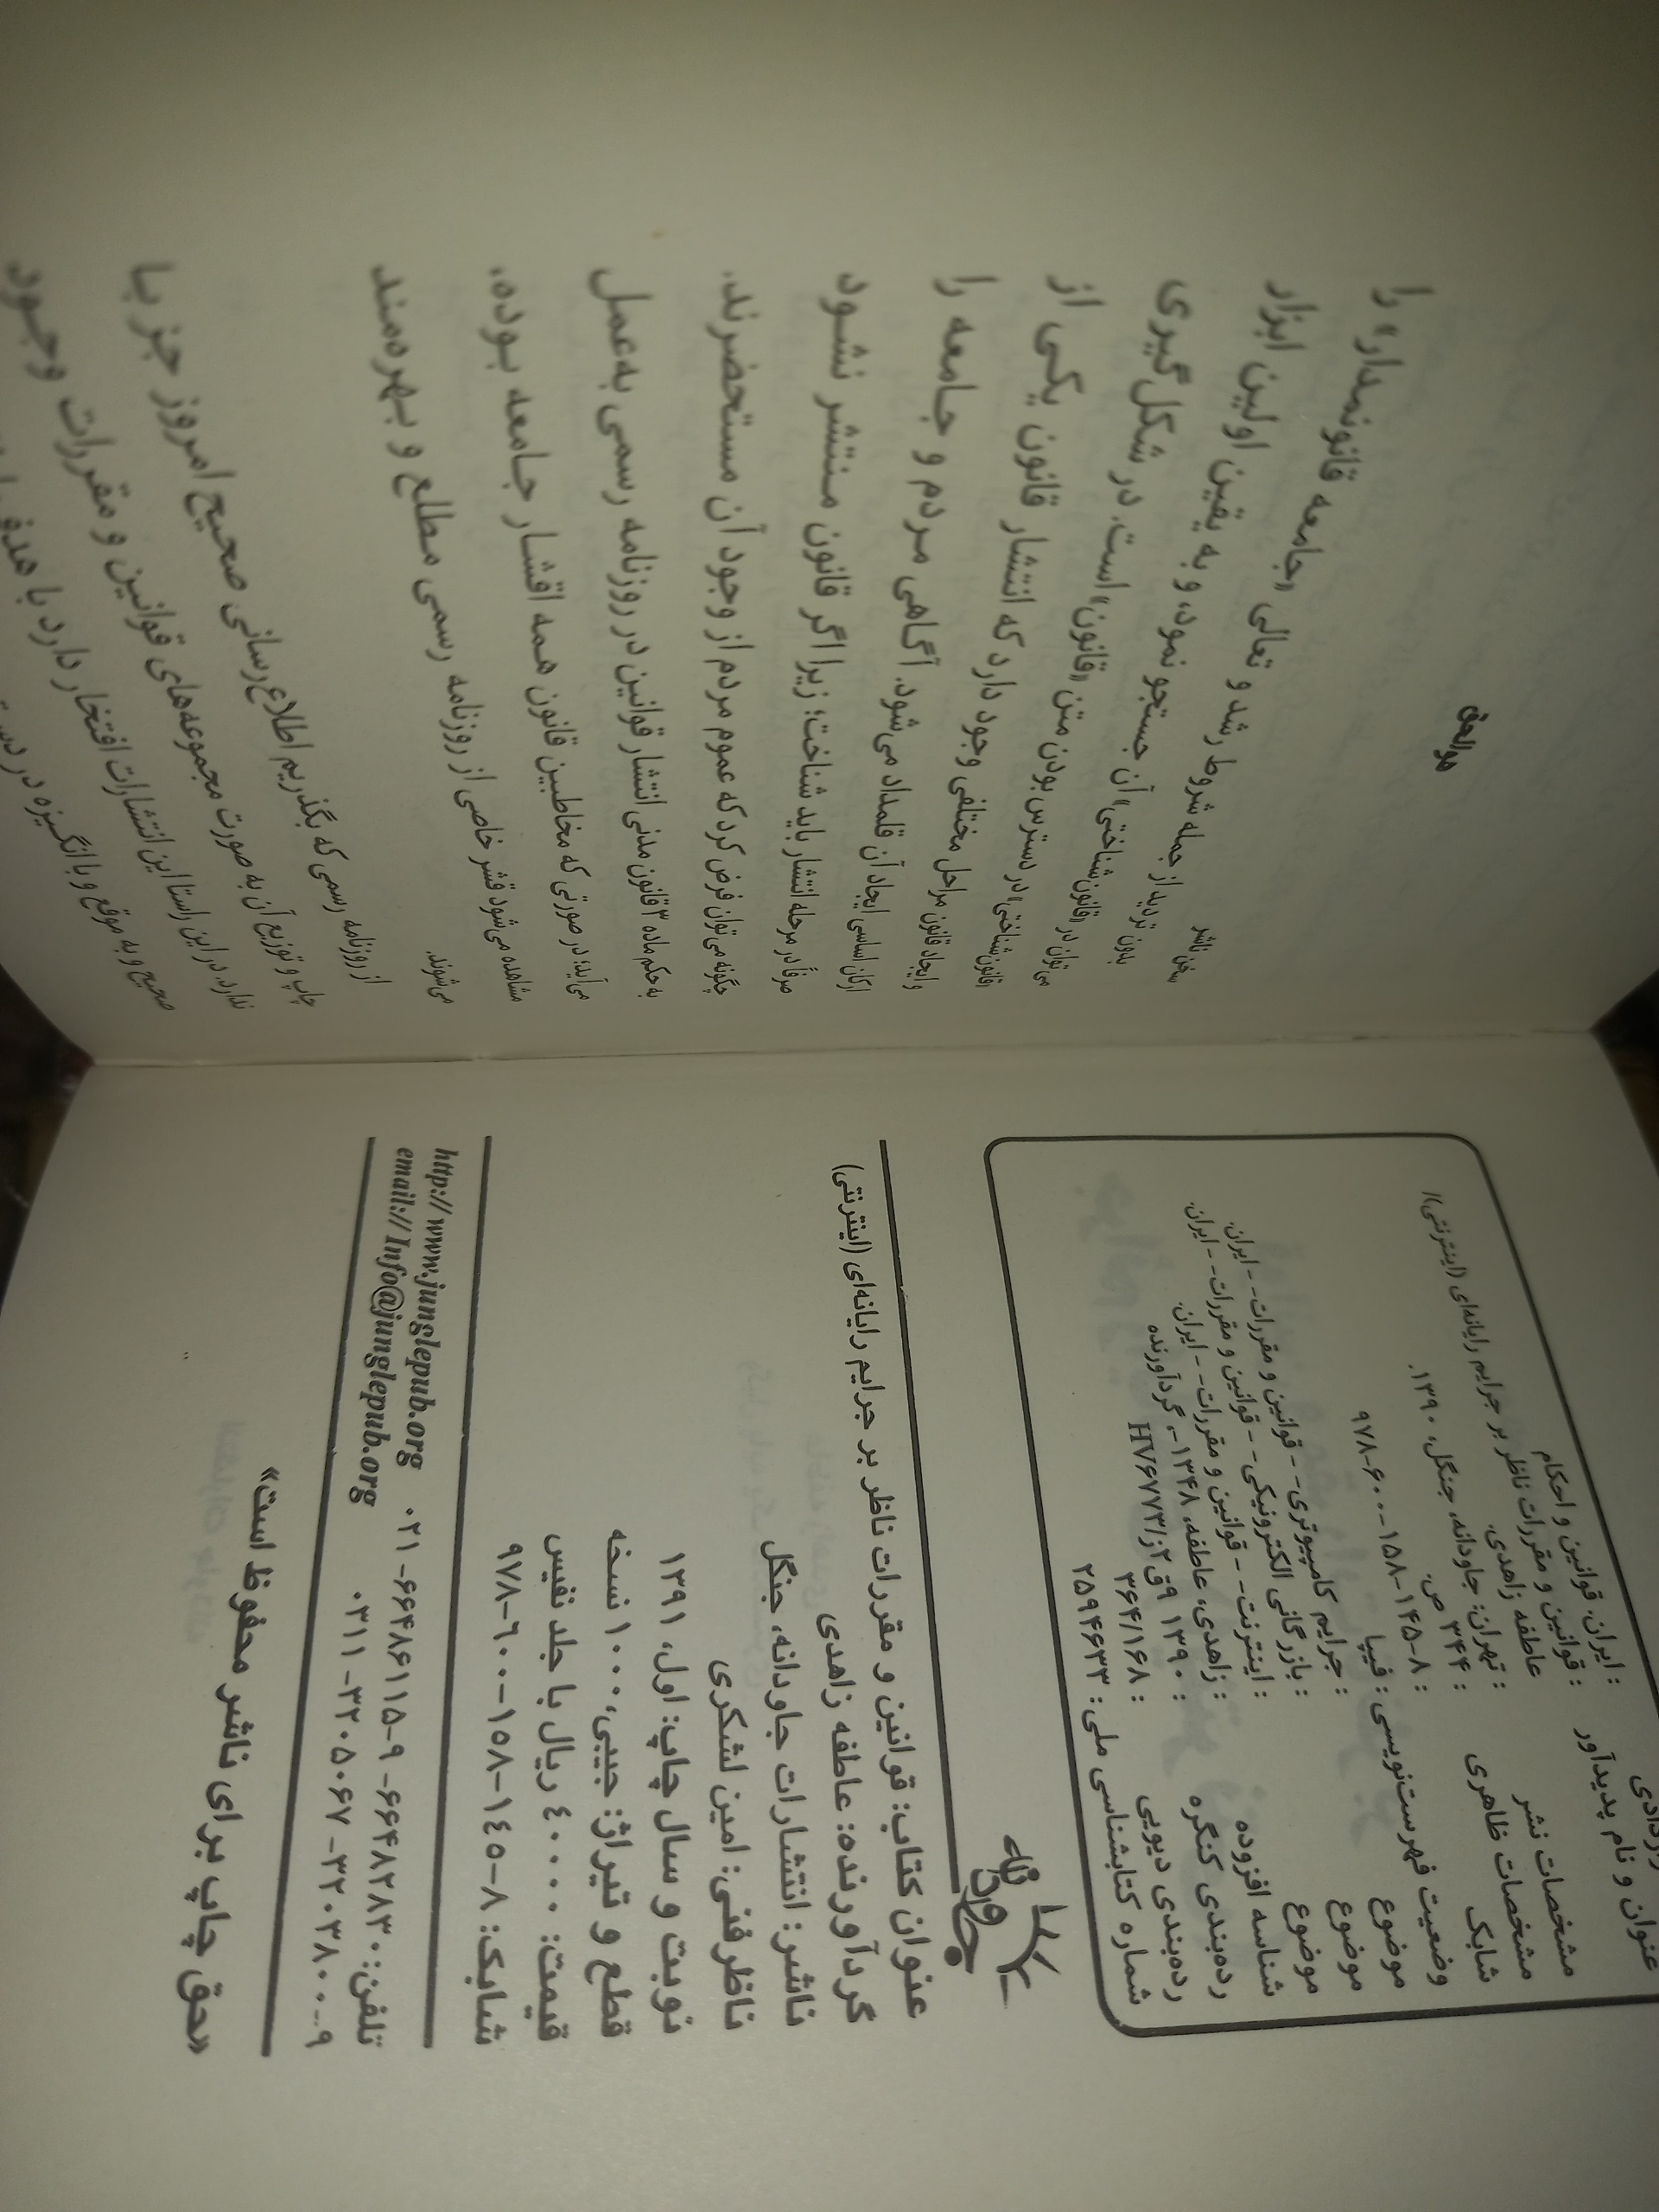 ایران. قوانین و احکام
عنوان و نام پدیدآور : قوانین و مقررات ناظر بر جرایم رایانه‌ای (اینترنتی)/
عاطفه زاهدی.
مشخصات نشر : تهران: جاودانه، جنگل، ۱۳۹۰.
مشخصات ظاهری : ۳۴۴ ص.
شابک : ۹۷۸-۶۰۰-۱۵۸-۱۴۵-۸
وضعیت فهرست‌نویسی : فیپا
موضوع : جرایم کامپیوتری- - قوانین و مقررات- - ایران.
موضوع : بازرگانی الکترونیکی- - قوانین و مقررات- - ایران.
موضوع : اینترنت- - قوانین و مقررات- - ایران.
شناسه افزوده : زاهدی، عاطفه، ۱۳۴۸-، گردآورنده
رده‌بندی کنگره : ۱۳۹۰ ۹ق۲ز/HV۶۷۷۳
رده‌بندی دیویی : ۳۶۴/۱۶۸
شماره کتابشناسی ملی : ۲۵۹۴۶۳۳
جنگل
جاودانه
عنوان کتاب: قوانین و مقررات ناظر بر جرایم رایانه‌ای (اینترنتی)
گردآورنده: عاطفه زاهدی
ناشر: انتشارات جاودانه، جنگل
ناظر فنی: امین لشکری
نوبت و سال چاپ: اول، ۱۳۹۱
قطع و تیراژ: جیبی، ۱۰۰۰ نسخه
قیمت: ۴۰۰۰۰ ریال با جلد نفیس
شابک: ۸-۱۴۵-۱۵۸-۶۰۰-۹۷۸
http://www.junglepub.org تلفن: ۶۶۴۸۲۸۳۰ -۶۶۴۸۶۱۱۵-۹ -۰۲۱
email://Info@junglepub.org ۳۲۰۳۸۰۰-۹ -۳۲۰۵۰۶۷ -۰۳۱۱
«حق چاپ برای ناشر محفوظ است»
هوالحق
سخن ناشر
بدون تردید از جمله شروط رشد و تعالی «جامعه قانونمدار» را
می‌توان در «قانون‌شناختی» آن جستجو نمود، و به یقین اولین ابزار
«قانون‌شناختی» در دسترس بودن متن «قانون» است. در شکل‌گیری
و ایجاد قانون مراحل مختلفی وجود دارد که انتشار قانون یکی از
ارکان اساسی ایجاد آن قلمداد می‌شود. آگاهی مردم و جامعه را
صرفاً در مرحله انتشار باید شناخت؛ زیرا اگر قانون منتشر نشود
چگونه می‌توان فرض کرد که عموم مردم از وجود آن مستحضرند.
به حکم ماده ۳ قانون مدنی انتشار قوانین در روزنامه رسمی به‌عمل
می‌آید؛ در صورتی که مخاطبین قانون همه اقشار جامعه بوده،
مشاهده می‌شود قشر خاصی از روزنامه رسمی مطلع و بهره‌مند
می‌شوند.
از روزنامه رسمی که بگذریم اطلاع‌رسانی صحیح امروز جز با
چاپ و توزیع آن به صورت مجموعه‌های قوانین و مقررات وجود
ندارد. در این راستا این انتشارات افتخار دارد با هدف
صحیح و به موقع و با انگیزه در